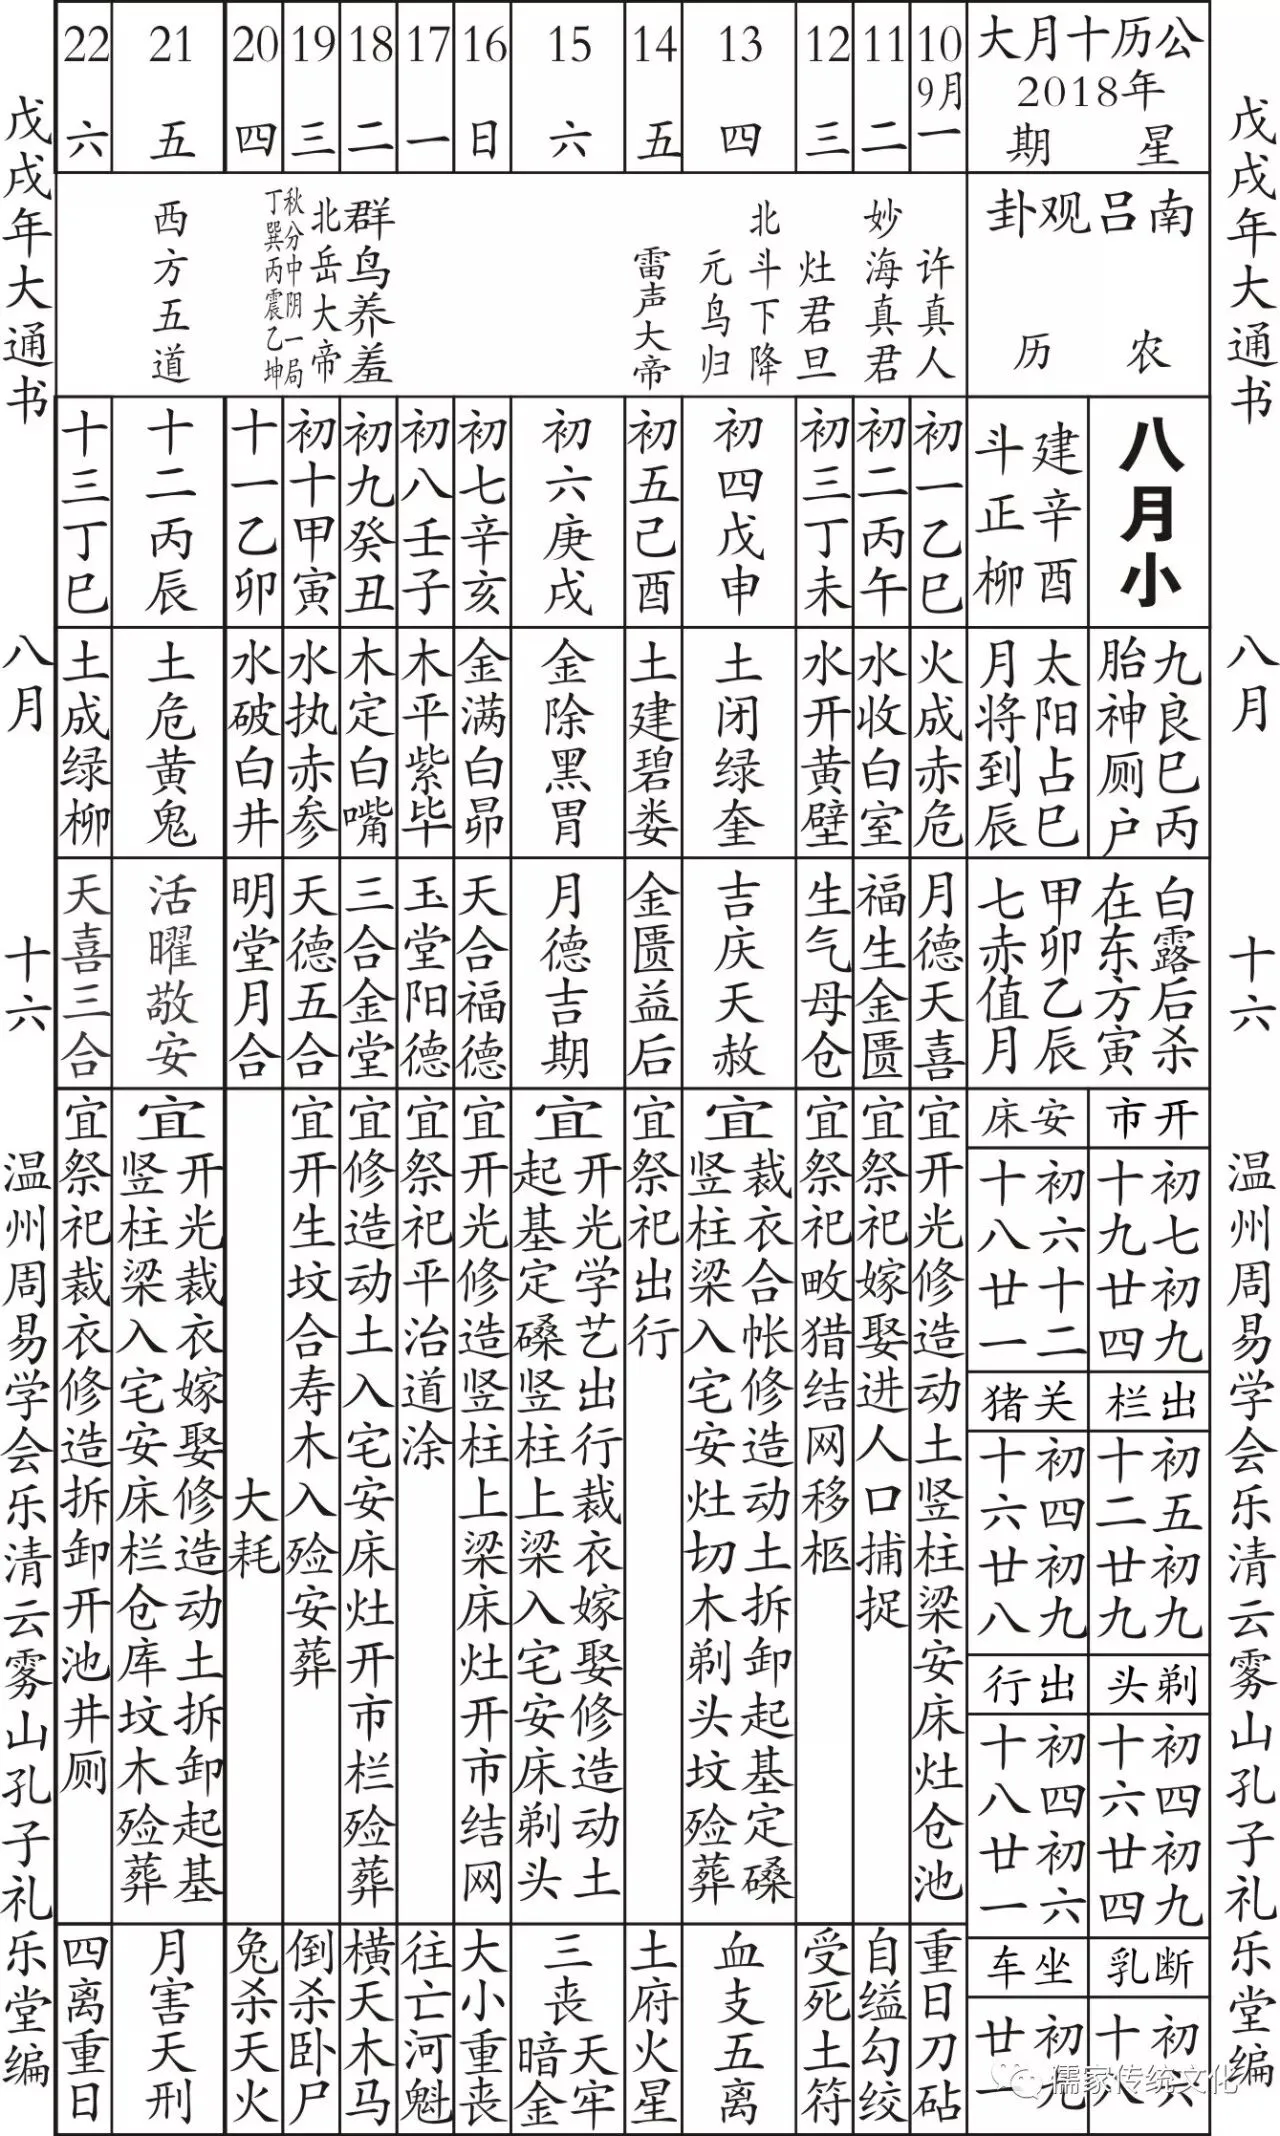 戊戌年大通书
八月
十六
温州周易学会乐清云雾山孔子礼乐堂编
公历十月大
2018年
星期
南吕观卦
农历
八月小
建辛酉
斗正柳
九良巳丙
胎神厕户
太阳占巳
月将到辰
白露后杀
在东方寅
甲卯乙辰
七赤值月
开市
初七初九
十九廿四
安床
初六十二
十八廿一
出栏
初五初九
十二廿九
关猪
初四初九
十六廿八
剃头
初四初九
十六廿四
出行
初四初六
十八廿一
断乳
初六
十八
坐车
初九
廿一
10
9月
一
许真人
初一乙巳
火成赤危
月德天喜
宜开光修造动土竖柱梁安床灶仓池
重日刀砧
11
二
妙海真君
初二丙午
水收白室
福生金匮
宜祭祀嫁娶进人口捕捉
自缢勾绞
12
三
灶君旦
初三丁未
水开黄壁
生气母仓
宜祭祀畋猎结网移柩
受死土符
13
四
北斗下降
元鸟归
初四戊申
土闭绿奎
吉庆天赦
宜
裁衣合帐修造动土拆卸起基定磉
竖柱梁入宅安灶切木剃头坟殓葬
血支五离
14
五
雷声大帝
初五己酉
土建碧娄
金匮益后
宜祭祀出行
土府火星
15
六
初六庚戌
金除黑胃
月德吉期
宜
开光学艺出行裁衣嫁娶修造动土
起基定磉竖柱上梁入宅安床剃头
三丧
天牢
暗金
16
日
初七辛亥
金满白昴
天合福德
宜开光修造竖柱上梁床灶开市结网
大小重丧
17
一
初八壬子
木平紫毕
玉堂阳德
宜祭祀平治道涂
往亡河魁
18
二
群鸟养羞
初九癸丑
木定白嘴
三合金堂
宜修造动土入宅安床灶开市栏殓葬
横天木马
19
三
北岳大帝
秋分中阴一局
丁巽丙震乙坤
初十甲寅
水执赤参
天德五合
宜开生坟合寿木入殓安葬
倒杀卧尸
20
四
十一乙卯
水破白井
明堂月合
大耗
兔杀天火
21
五
西方五道
十二丙辰
土危黄鬼
活曜敬安
宜
开光裁衣嫁娶修造动土拆卸起基
竖柱梁入宅安床栏仓库坟木殓葬
月害天刑
22
六
十三丁巳
土成绿柳
天喜三合
宜祭祀裁衣修造拆卸开池井厕
四离重日
戊戌年大通书
八月
十六
温州周易学会乐清云雾山孔子礼乐堂编
儒家传统文化